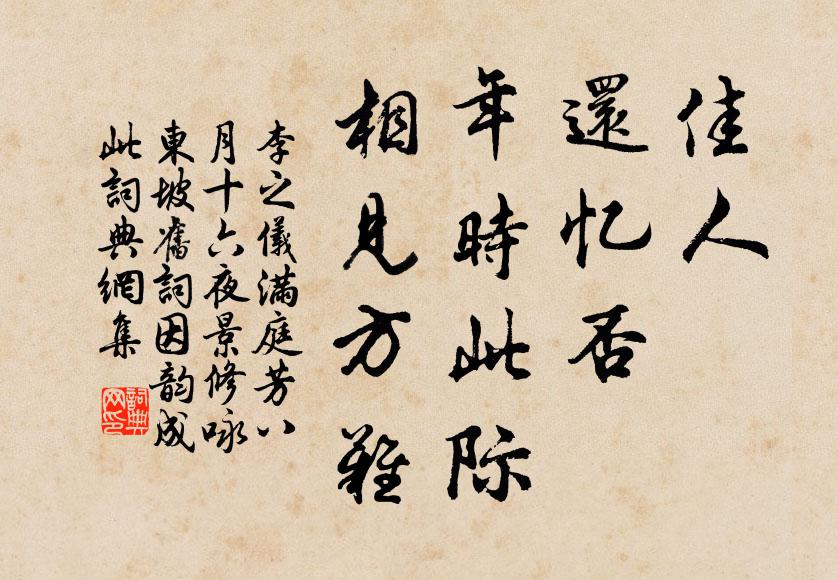 佳人
還忆否
年時此际
相見方難
李之儀滿庭芳八
月十六夜景修咏
東坡舊詞因韵成
此詞典網集
詞典
网印